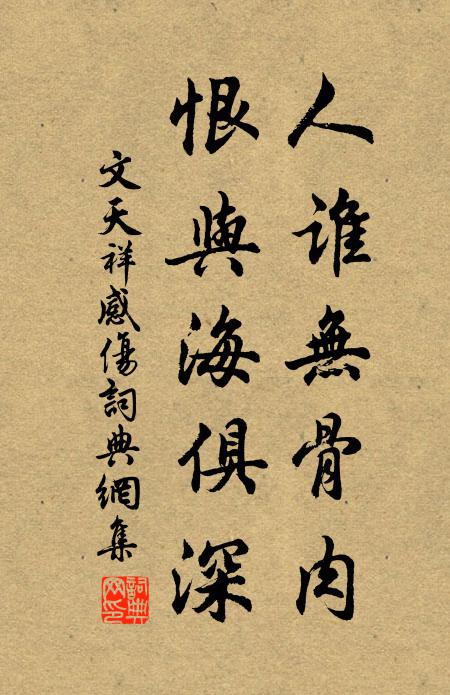 人誰無骨肉
恨與海俱深
文天祥感傷詞典網集
詞典網印